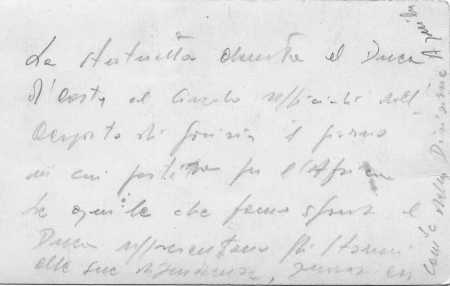 La statuetta donata al Duca
d'Aosta al Circolo ufficiali dell'
Aeroporto di Gorizia il giorno
in cui partiva per l'Africa
Le aquile che fanno sfondo al
Duca rappresentano gli Stormi
alle sue dipendenze,
della Divisione Aquila